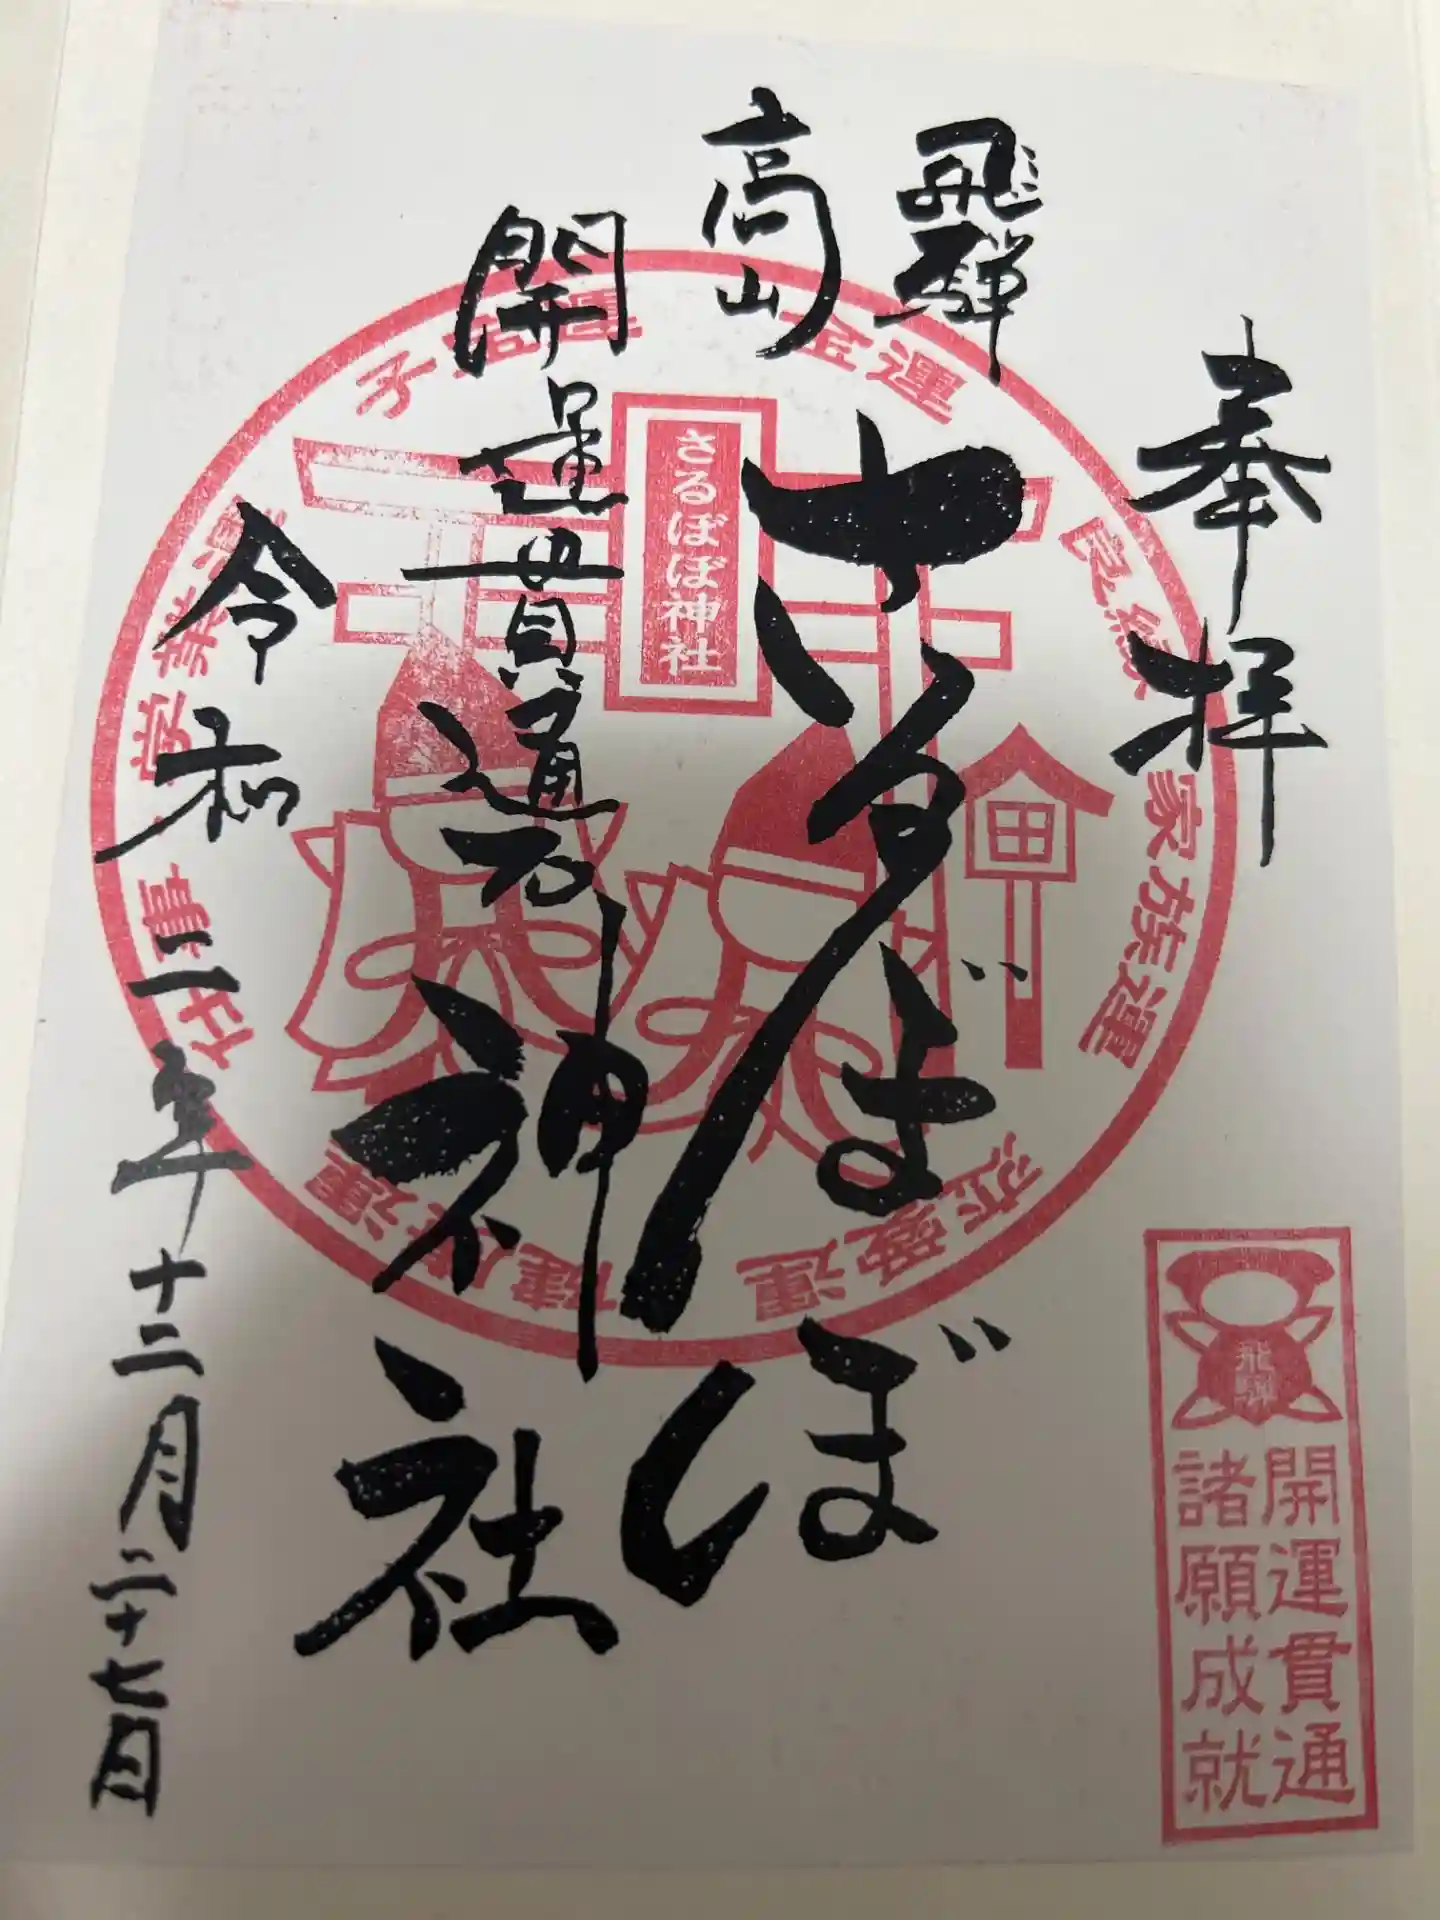 奉拝
飛騨
高山
さるぼぼ
開運貫通石
神社
令和二年十二月二十七日
さるぼぼ神社
金運
良縁
家族運
恋愛運
健康運
仕事
学業運
子宝運
飛騨
開運貫通
諸願成就